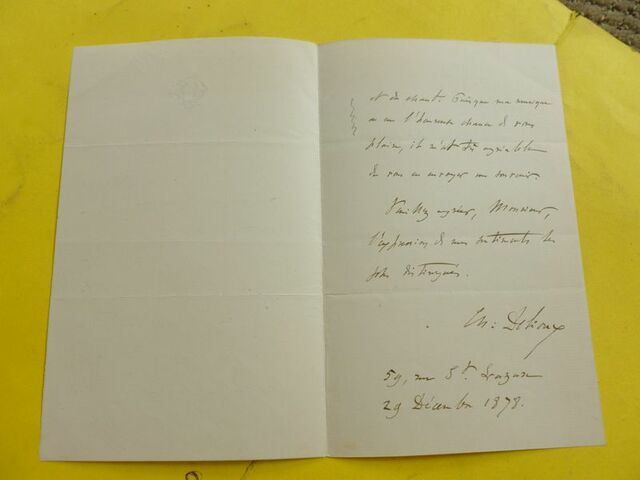 et du chant. Puisque ma musique
a eu l'heureuse chance de vous
plaire, il m'est très agréable
de vous en envoyer un souvenir.
Veuillez agréer, Monsieur,
l'expression de mes sentiments les
plus distingués.
Ch. Delioux
59, rue St. Lazare
29 Décembre 1878.